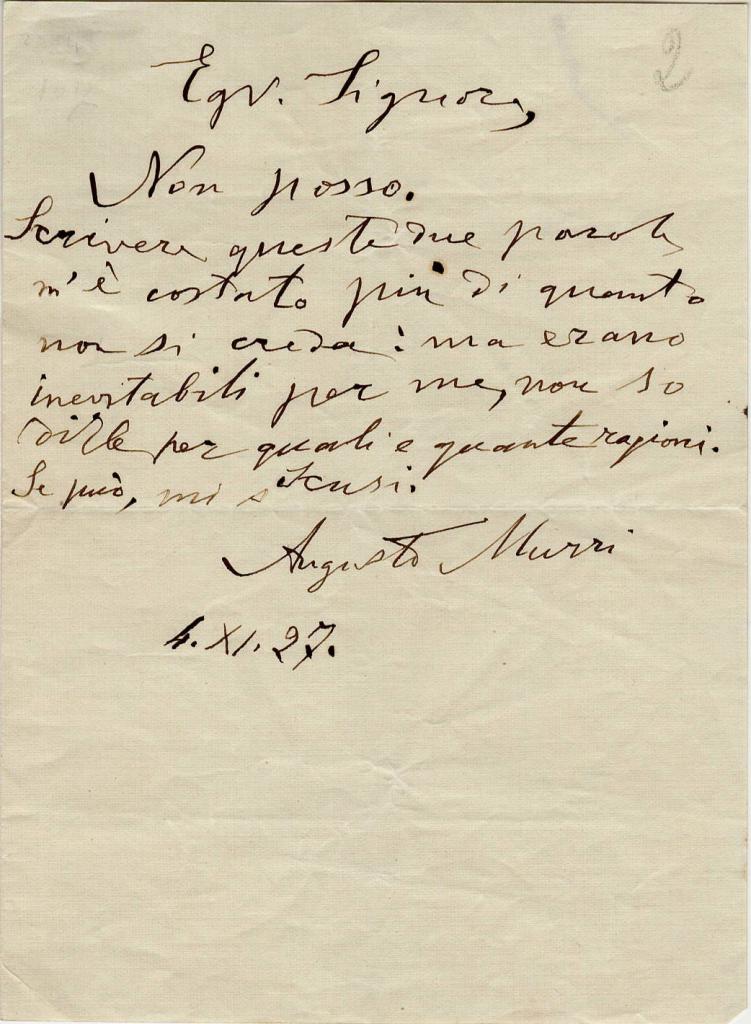 2
Egr. Signore,
Non posso.
Scrivere queste due parole
m'è costato più di quanto
non si creda: ma erano
inevitabili per me, non so
dirle per quali e quante ragioni.
Se può, mi scusi.
Augusto Murri
4. XI. 27.